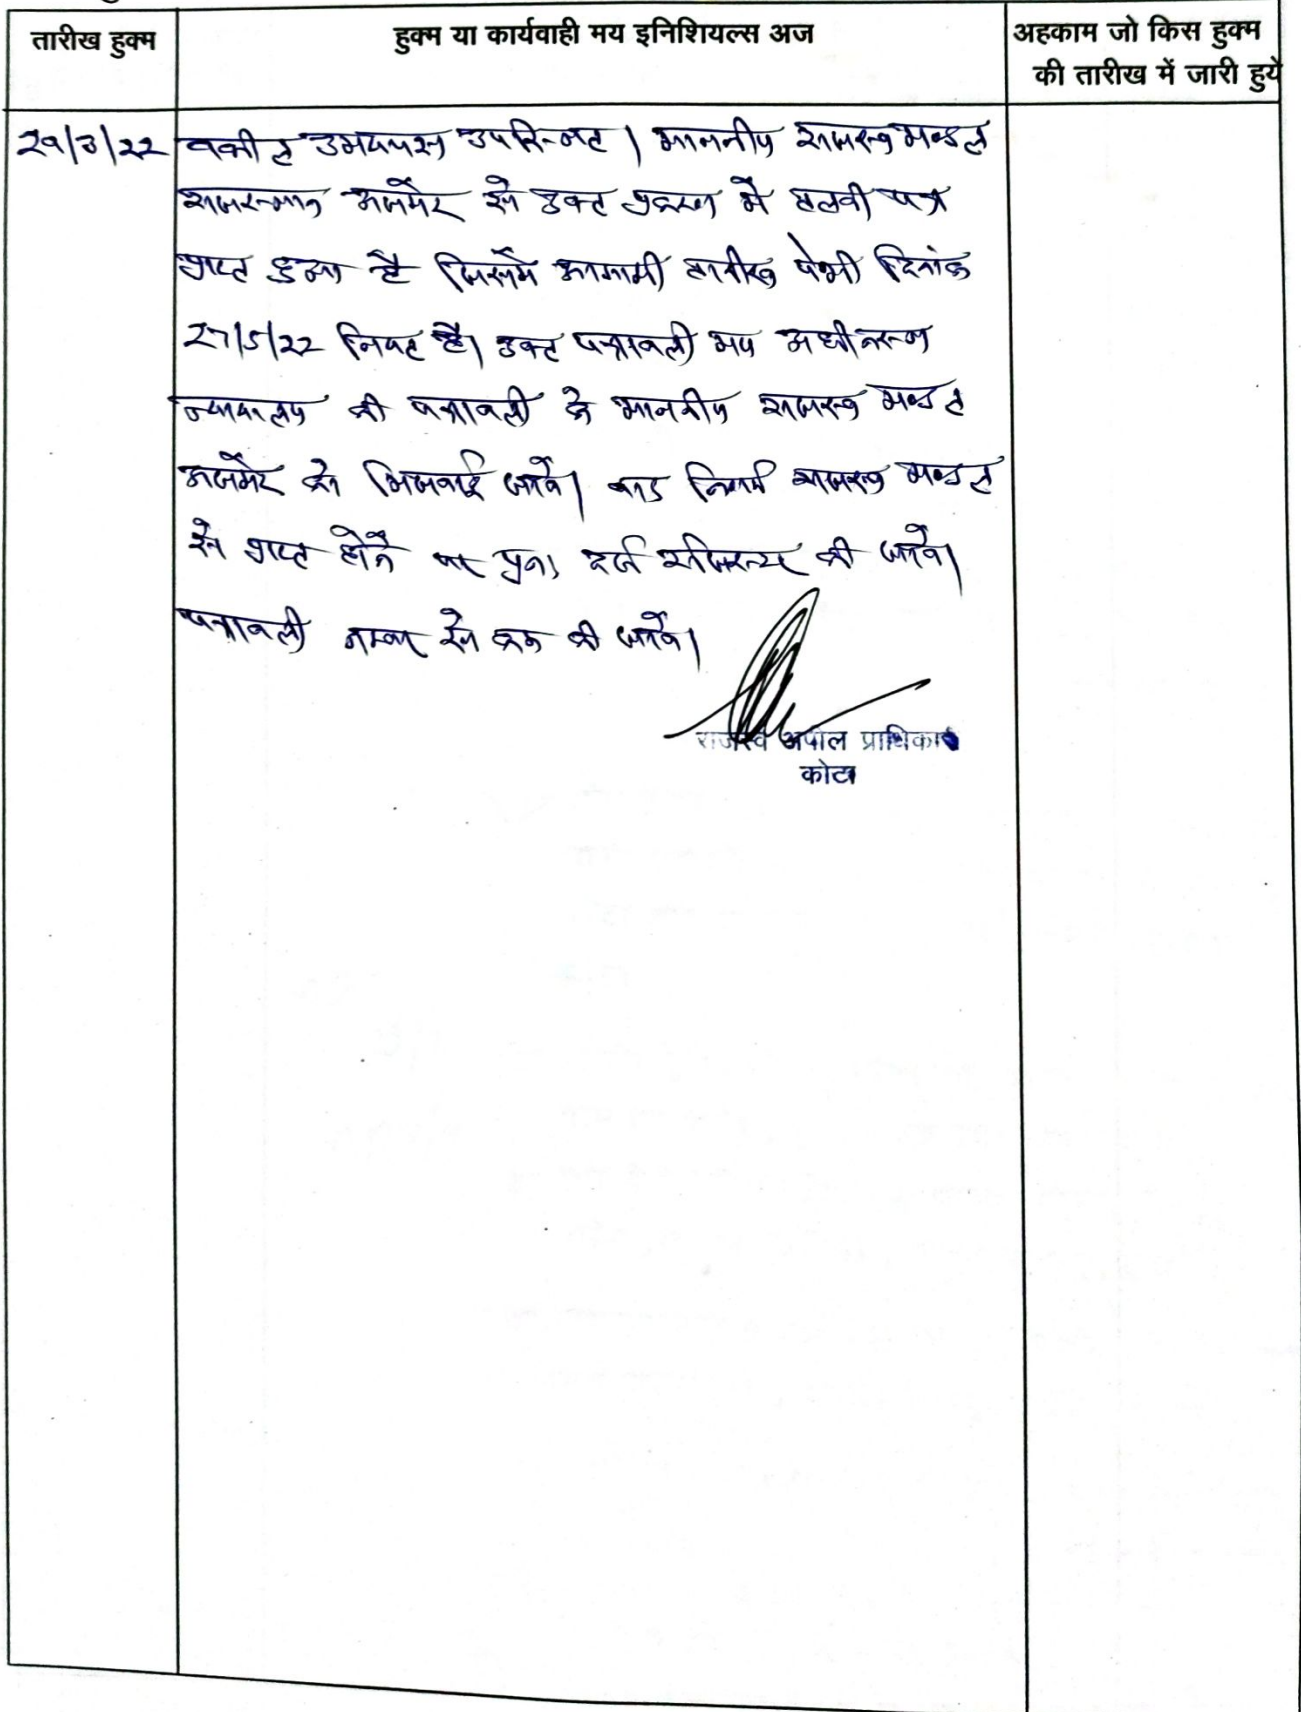 तारीख हुक्म
हुक्म या कार्यवाही मय इनिशियल्स अज
अहकाम जो किस हुक्म
की तारीख में जारी हुये
29/3/22
वकील उभयपक्ष उपस्थित। माननीय राजस्व मण्डल
राजस्थान अजमेर से उक्त प्रकरण में तलवी पत्र
प्राप्त हुआ है जिसमें आगामी तारीख पेशी दिनांक
27/5/22 नियत है। उक्त पत्रावली मय अधीनस्थ
न्यायालय की पत्रावली के माननीय राजस्व मण्डल
अजमेर को भिजवाई जावें। बाद निर्णय राजस्व मण्डल
से प्राप्त होने पर पुनः दर्ज रजिस्टर की जावें।
पत्रावली नम्बर से कम की जावें।
राजस्व अपील प्राधिकारी
कोटा